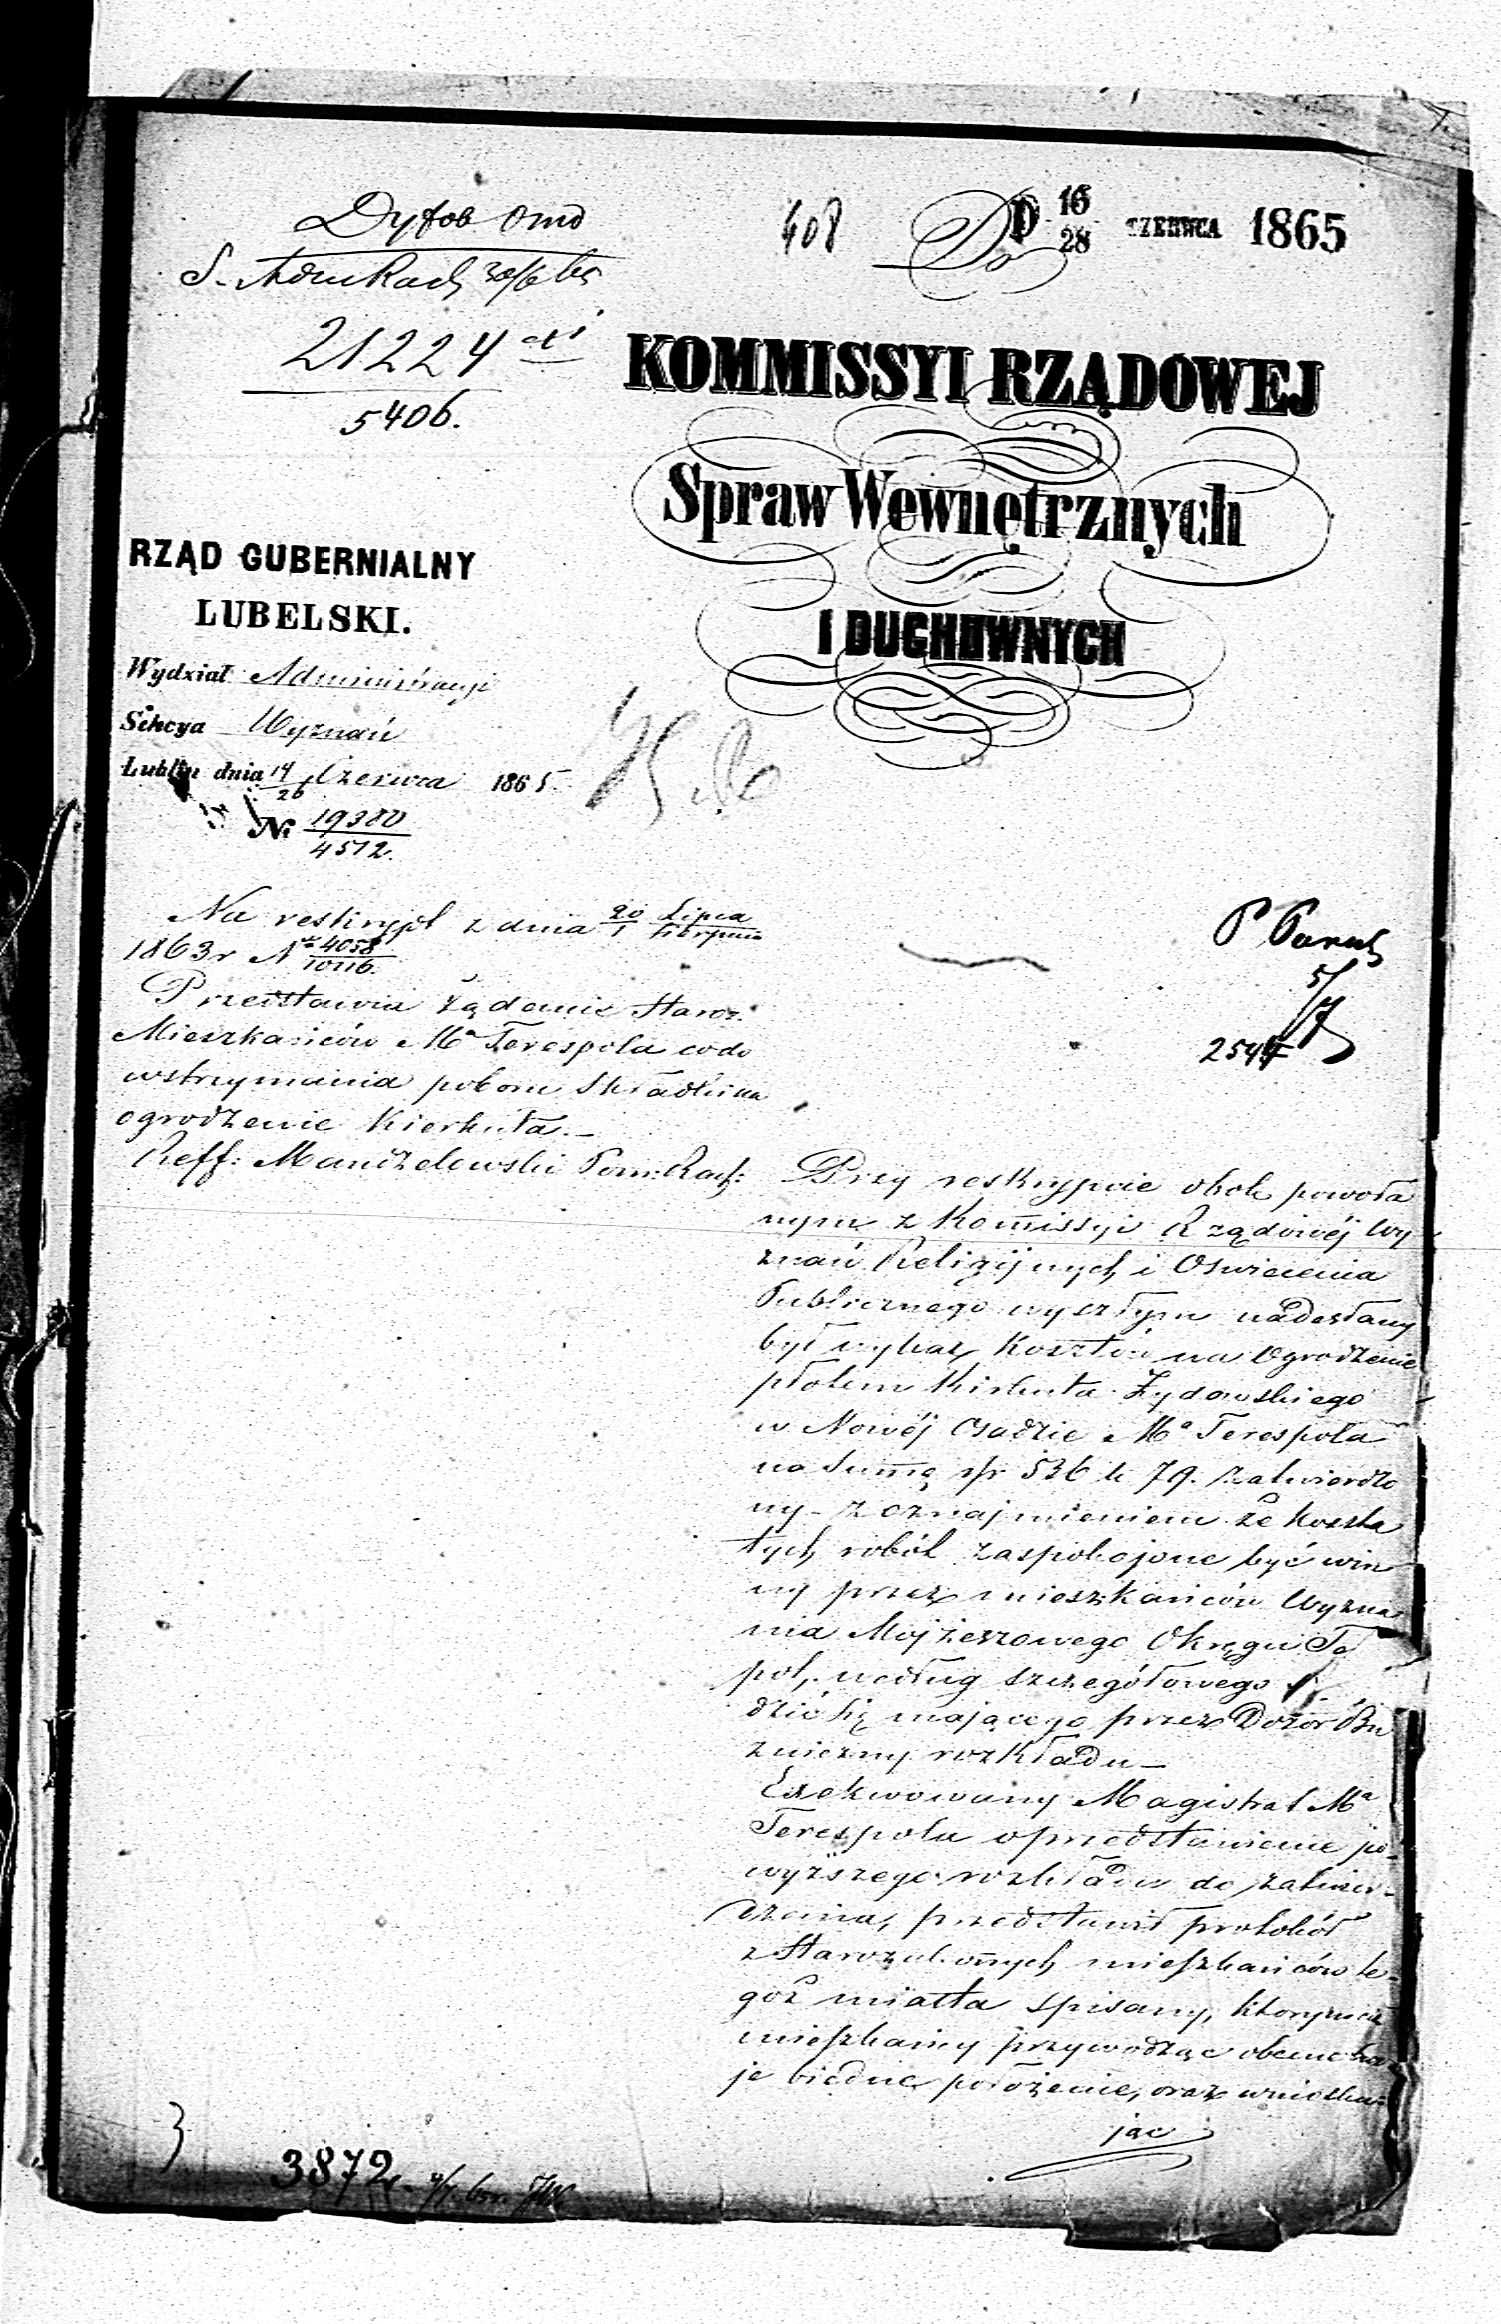 408
Do
D 16/28 CZERWCA 1865
21224
5406.
KOMMISSYI RZĄDOWEJ
Spraw Wewnętrznych
I DUCHOWNYCH
RZĄD GUBERNIALNY
LUBELSKI.
Wydział Administracyi
Sekcya Wyznań
Lublin dnia 14/26 Czerwca 1865.
N: 19380/4512.
Na reskrypt z dnia 20 Lipca/1 Sierpnia
1863 r N 4058/10116.
Przedstawia żądanie Staroz.
Mieszkańców Mª Terespola codo
wstrzymania poboru Składki na
ogrodzenie Kierkuta.—
Reff: Mandzelowski Pom: Rach:
5/7
Przy reskrypcie obok powoła
nym z Kommissyi Rządowéj Wy
znań Religijnych i Oświecenia
Publicznego wyszłym nadesłany
był wykaz Kosztów na Ogrodzenie
płotem Kirkuta Żydowskiego
w Nowéj Osadzie Mª Terespola
na Summę rsr 536 k 79. zatwierdzo
ny – z oznajmieniem że koszta
tych robót zaspokojone być win
ny przez mieszkańców Wyzna
nia Mojżeszowego Okręgu Te
pol, według szczegółowego
dzić się mającego przez Dozór Bó
żniczny rozkładu—
Exekwowany Magistrat Mª
Terespola o przedstawienie po-
wyższego rozkładu do zatwier-
dzenia, przedstawił protokół
z Starozakonnych mieszkańców te-
goż miasta spisany, którym ciż
mieszkańcy przywodząc obecne swo
je biedne położenie, oraz wniosku
jąc
3
3872